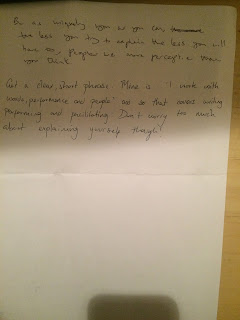 Be as uniquely you as you can,
the less you try to explain the less you will
have to, Perhaps we more
your
Get a clear, short phrase. Mine is "I work with
words, performance and people" as so that covers writing
preparing and facilitating. Don't worry too much
about explaining yourself though.